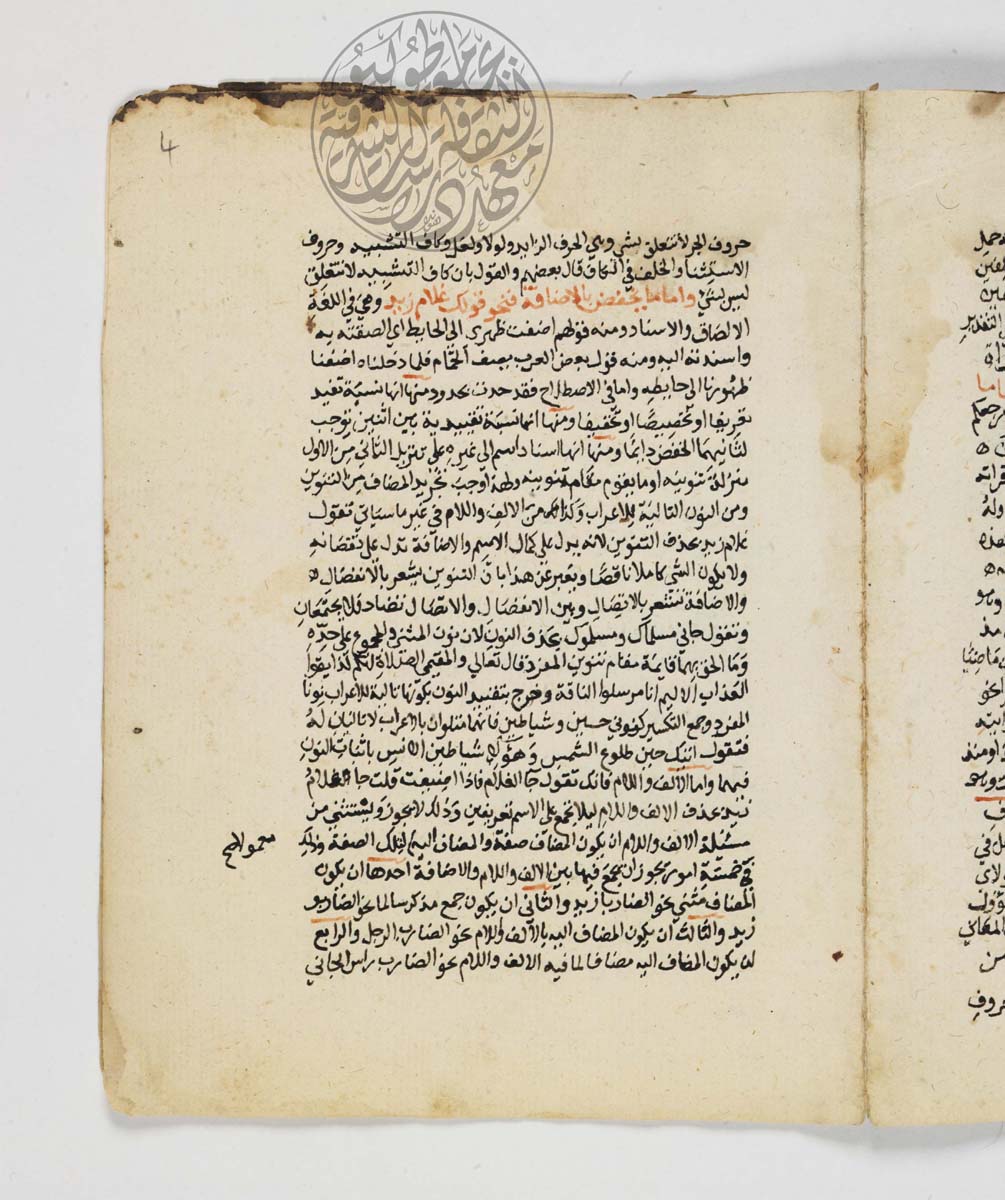 4
حروف الجر لا تتعلق بشي وهي الحرف الزايد ولولا ولعل وكاف التشبيه وحروف
الاستثنا والخلف في الكاف قال بعضهم والقول بان كاف التشبيه لا تتعلق
ليس بشي واما ما يخفض بالاضافة فنحو قولك غلام زيد وهي في اللغة
الالصاق والاسناد ومنه قولهم اضفت ظهري الى الحايط اي الصقته به
واسندته اليه ومنه قول بعض العرب يصف الحمام فلما دخلناه اضفنا
ظهورنا الى حايطه واما في الاصطلاح فقد حدت بحدود منها انها نسبة تفيد
تعريفا او تخصيصا او تخفيفا ومنها انها نسبة تقييدية بين اثنين توجب
لثانيهما الخفض دايما ومنها انها اسناد اسم الى غيره على تنزيل الثاني من الاول
منزلة تنوينه او ما يقوم مقام تنوينه ولهذا وجب تجريد المضاف من التنوين
ومن النون التالية للاعراب وكذا من الالف واللام في غير ما سياتي تقول
غلام زيد بحذف التنوين لانه يدل على كمال الاسم والاضافة تدل على نقصانه
ولا يكون الشي كاملا ناقصا ويعبر عن هذا بان التنوين يشعر بالانفصال
والاضافة تشعر بالاتصال وبين الانفصال والاتصال تضاد فلا يجتمعان
وتقول جاني مسلماك ومسلموك بحذف النون لان نون المثنى والمجموع على حده
وما الحق بهما قايمة مقام تنوين المفرد قال تعالي والمقيمي الصلاة انكم لذايقوا
العذاب الاليم انا مرسلوا الناقة وخرج بتقييد النون بكونها تالية للاعراب نونا
المفرد وجمع التكسير كنوني حسين وشياطين فانهما متلوان بالاعراب لا تاليان له
فتقول اتيك حين طلوع الشمس وهولا شياطين الانس باثبات النون
فيهما واما الالف واللام فانك تقول جا الغلام فاذا اضيفت قلت جا غلام
زيد بحذف الالف واللام ليلا يجمع على الاسم تعريفين وذلك لا يجوز ويستثنى من
مسئلة الالف واللام ان يكون المضاف صفة والمضاف اليه لتلك الصفة وذلك
في خمسة امور يجوز ان يجمع فيها بين الالف واللام والاضافة احدها ان يكون
المضاف مثني نحو الضاربا زيد والثاني ان يكون جمع مذكر سالما نحو الضاربو
زيد والثالث ان يكون المضاف اليه بالالف واللام نحو الضارب الرجل والرابع
ان يكون المضاف اليه مضافا لما فيه الالف واللام نحو الضارب راس الجاني
معمولا صح